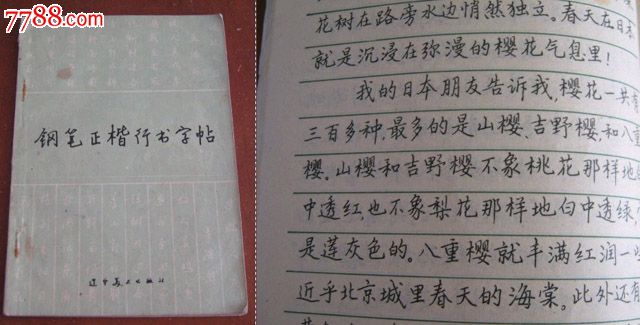 7788.com
钢笔正楷行书字帖
辽宁美术出版社
花树在路旁水边悄然独立。春天在日本
就是沉浸在弥漫的樱花气息里！
我的日本朋友告诉我,樱花一共有
三百多种,最多的是山樱、吉野樱,和八重
樱。山樱和吉野樱不象桃花那样地白
中透红,也不象梨花那样地白中透绿,
是莲灰色的。八重樱就丰满红润一些
近乎北京城里春天的海棠。此外还有